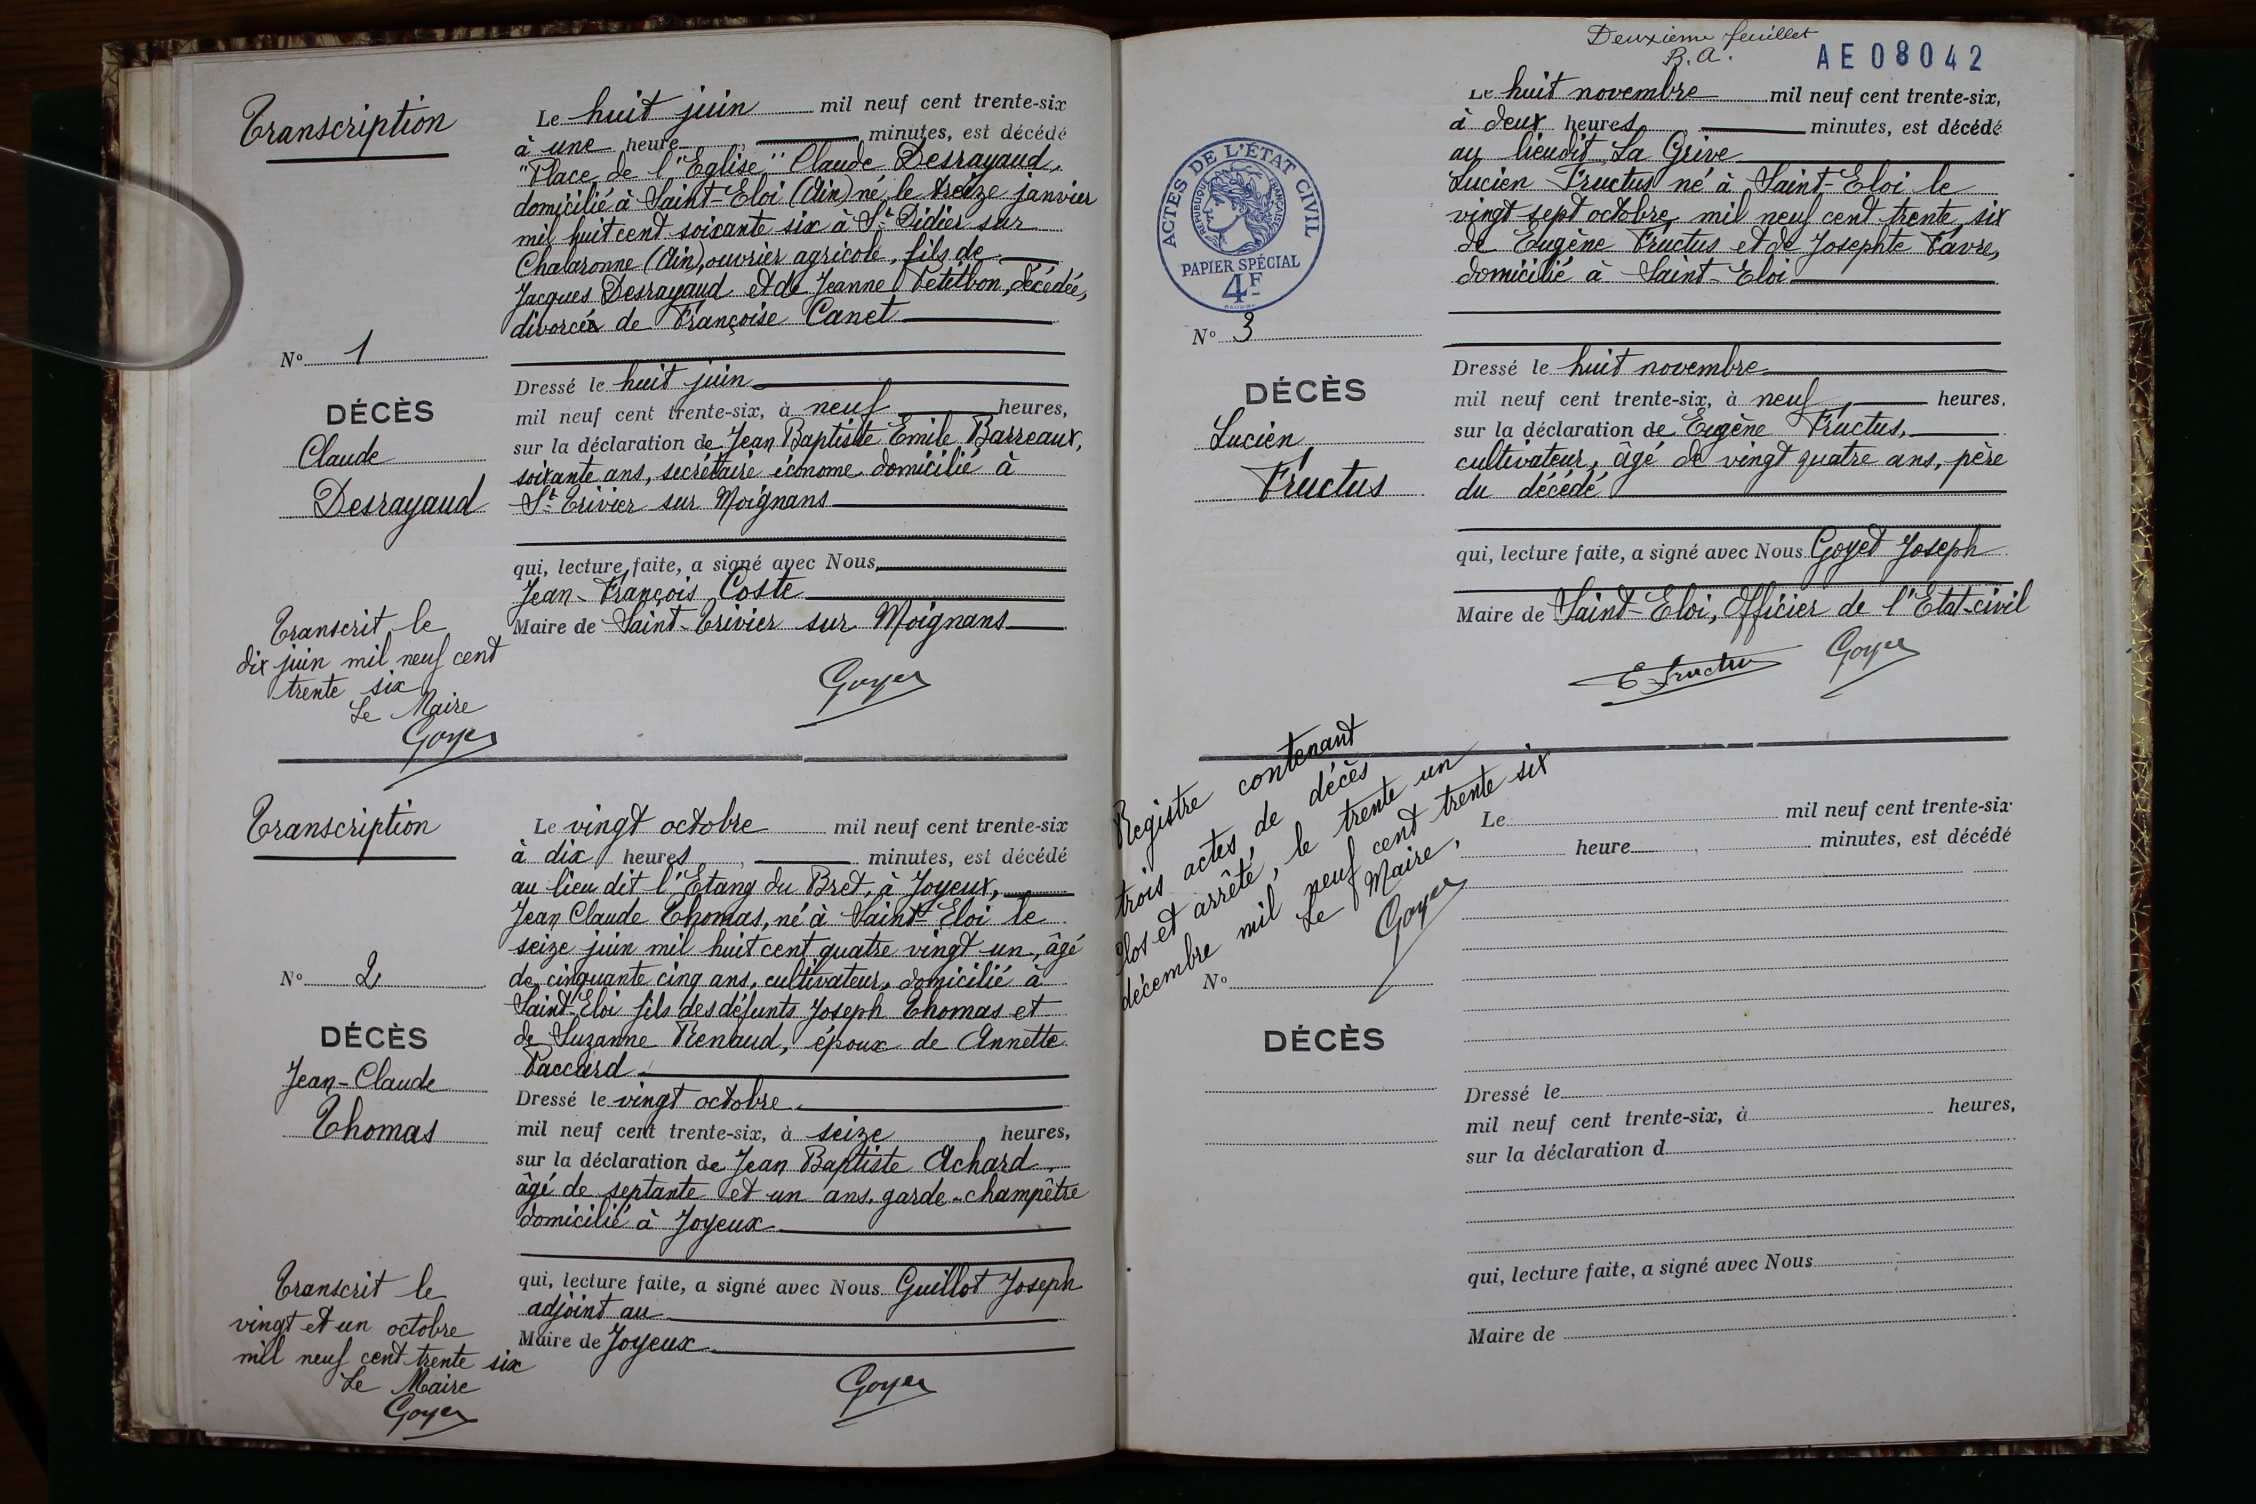 Transcription
Le huit juin mil neuf cent trente-six
à une heure, minutes, est décédé
"Place de l'Eglise" Claude Desrayaud,
domicilié à Saint-Eloi (Ain) né le treize janvier
mil huit cent soixante six à St Didier sur
Chalaronne (Ain), ouvrier agricole, fils de
Jacques Desrayaud et de Jeanne Petitbon, décédée,
divorcé de Françoise Canet
No 1
DÉCÈS
Claude
Desrayaud
Dressé le huit juin
mil neuf cent trente-six, à neuf heures,
sur la déclaration de Jean Baptiste Emile Barreaux,
soixante ans, secrétaire économe domicilié à
St Trivier sur Moignans
qui, lecture faite, a signé avec Nous,
Jean-François Coste
Maire de Saint-Trivier sur Moignans
Transcrit le
dix juin mil neuf cent
trente six
Le Maire
Goyet
Goyet
Transcription
Le vingt octobre mil neuf cent trente-six
à dix heures, minutes, est décédé
au lieu dit l'Etang du Bret, à Joyeux,
Jean Claude Thomas, né à Saint-Eloi le
seize juin mil huit cent quatre vingt un, âgé
de cinquante cinq ans, cultivateur, domicilié à
Saint-Eloi fils des défunts Joseph Thomas et
de Suzanne Renaud, époux de Annette
Paccard
No 2
DÉCÈS
Jean-Claude
Thomas
Dressé le vingt octobre
mil neuf cent trente-six, à seize heures,
sur la déclaration de Jean Baptiste Achard,
âgé de septante et un ans, garde-champêtre
domicilié à Joyeux
qui, lecture faite, a signé avec Nous Guillot Joseph
adjoint au
Maire de Joyeux
Transcrit le
vingt et un octobre
mil neuf cent trente six
Le Maire
Goyet
Goyet
Deuxième feuillet
B.A.
AE08042
Le huit novembre mil neuf cent trente-six,
à deux heures minutes, est décédé
au lieudit La Grive
Lucien Fructus né à Saint-Eloi le
vingt sept octobre mil neuf cent trente six
de Eugène Fructus et de Josephte Favre,
domicilié à Saint-Eloi
ACTES DE L'ÉTAT CIVIL
RÉPUBLIQUE FRANÇAISE
PAPIER SPÉCIAL
4F
No 3
DÉCÈS
Lucien
Fructus
Dressé le huit novembre
mil neuf cent trente-six, à neuf heures,
sur la déclaration de Eugène Fructus,
cultivateur, âgé de vingt quatre ans, père
du décédé
qui, lecture faite, a signé avec Nous Goyet Joseph
Maire de Saint-Eloi, Officier de l'Etat-civil
E Fructus
Goyet
Registre contenant
trois actes, de décès
clos et arrêté, le trente un
décembre mil neuf cent trente six
Le Maire,
Goyet
Le mil neuf cent trente-six
heure, minutes, est décédé
No
DÉCÈS
Dressé le
mil neuf cent trente-six, à heures,
sur la déclaration d
qui, lecture faite, a signé avec Nous
Maire de